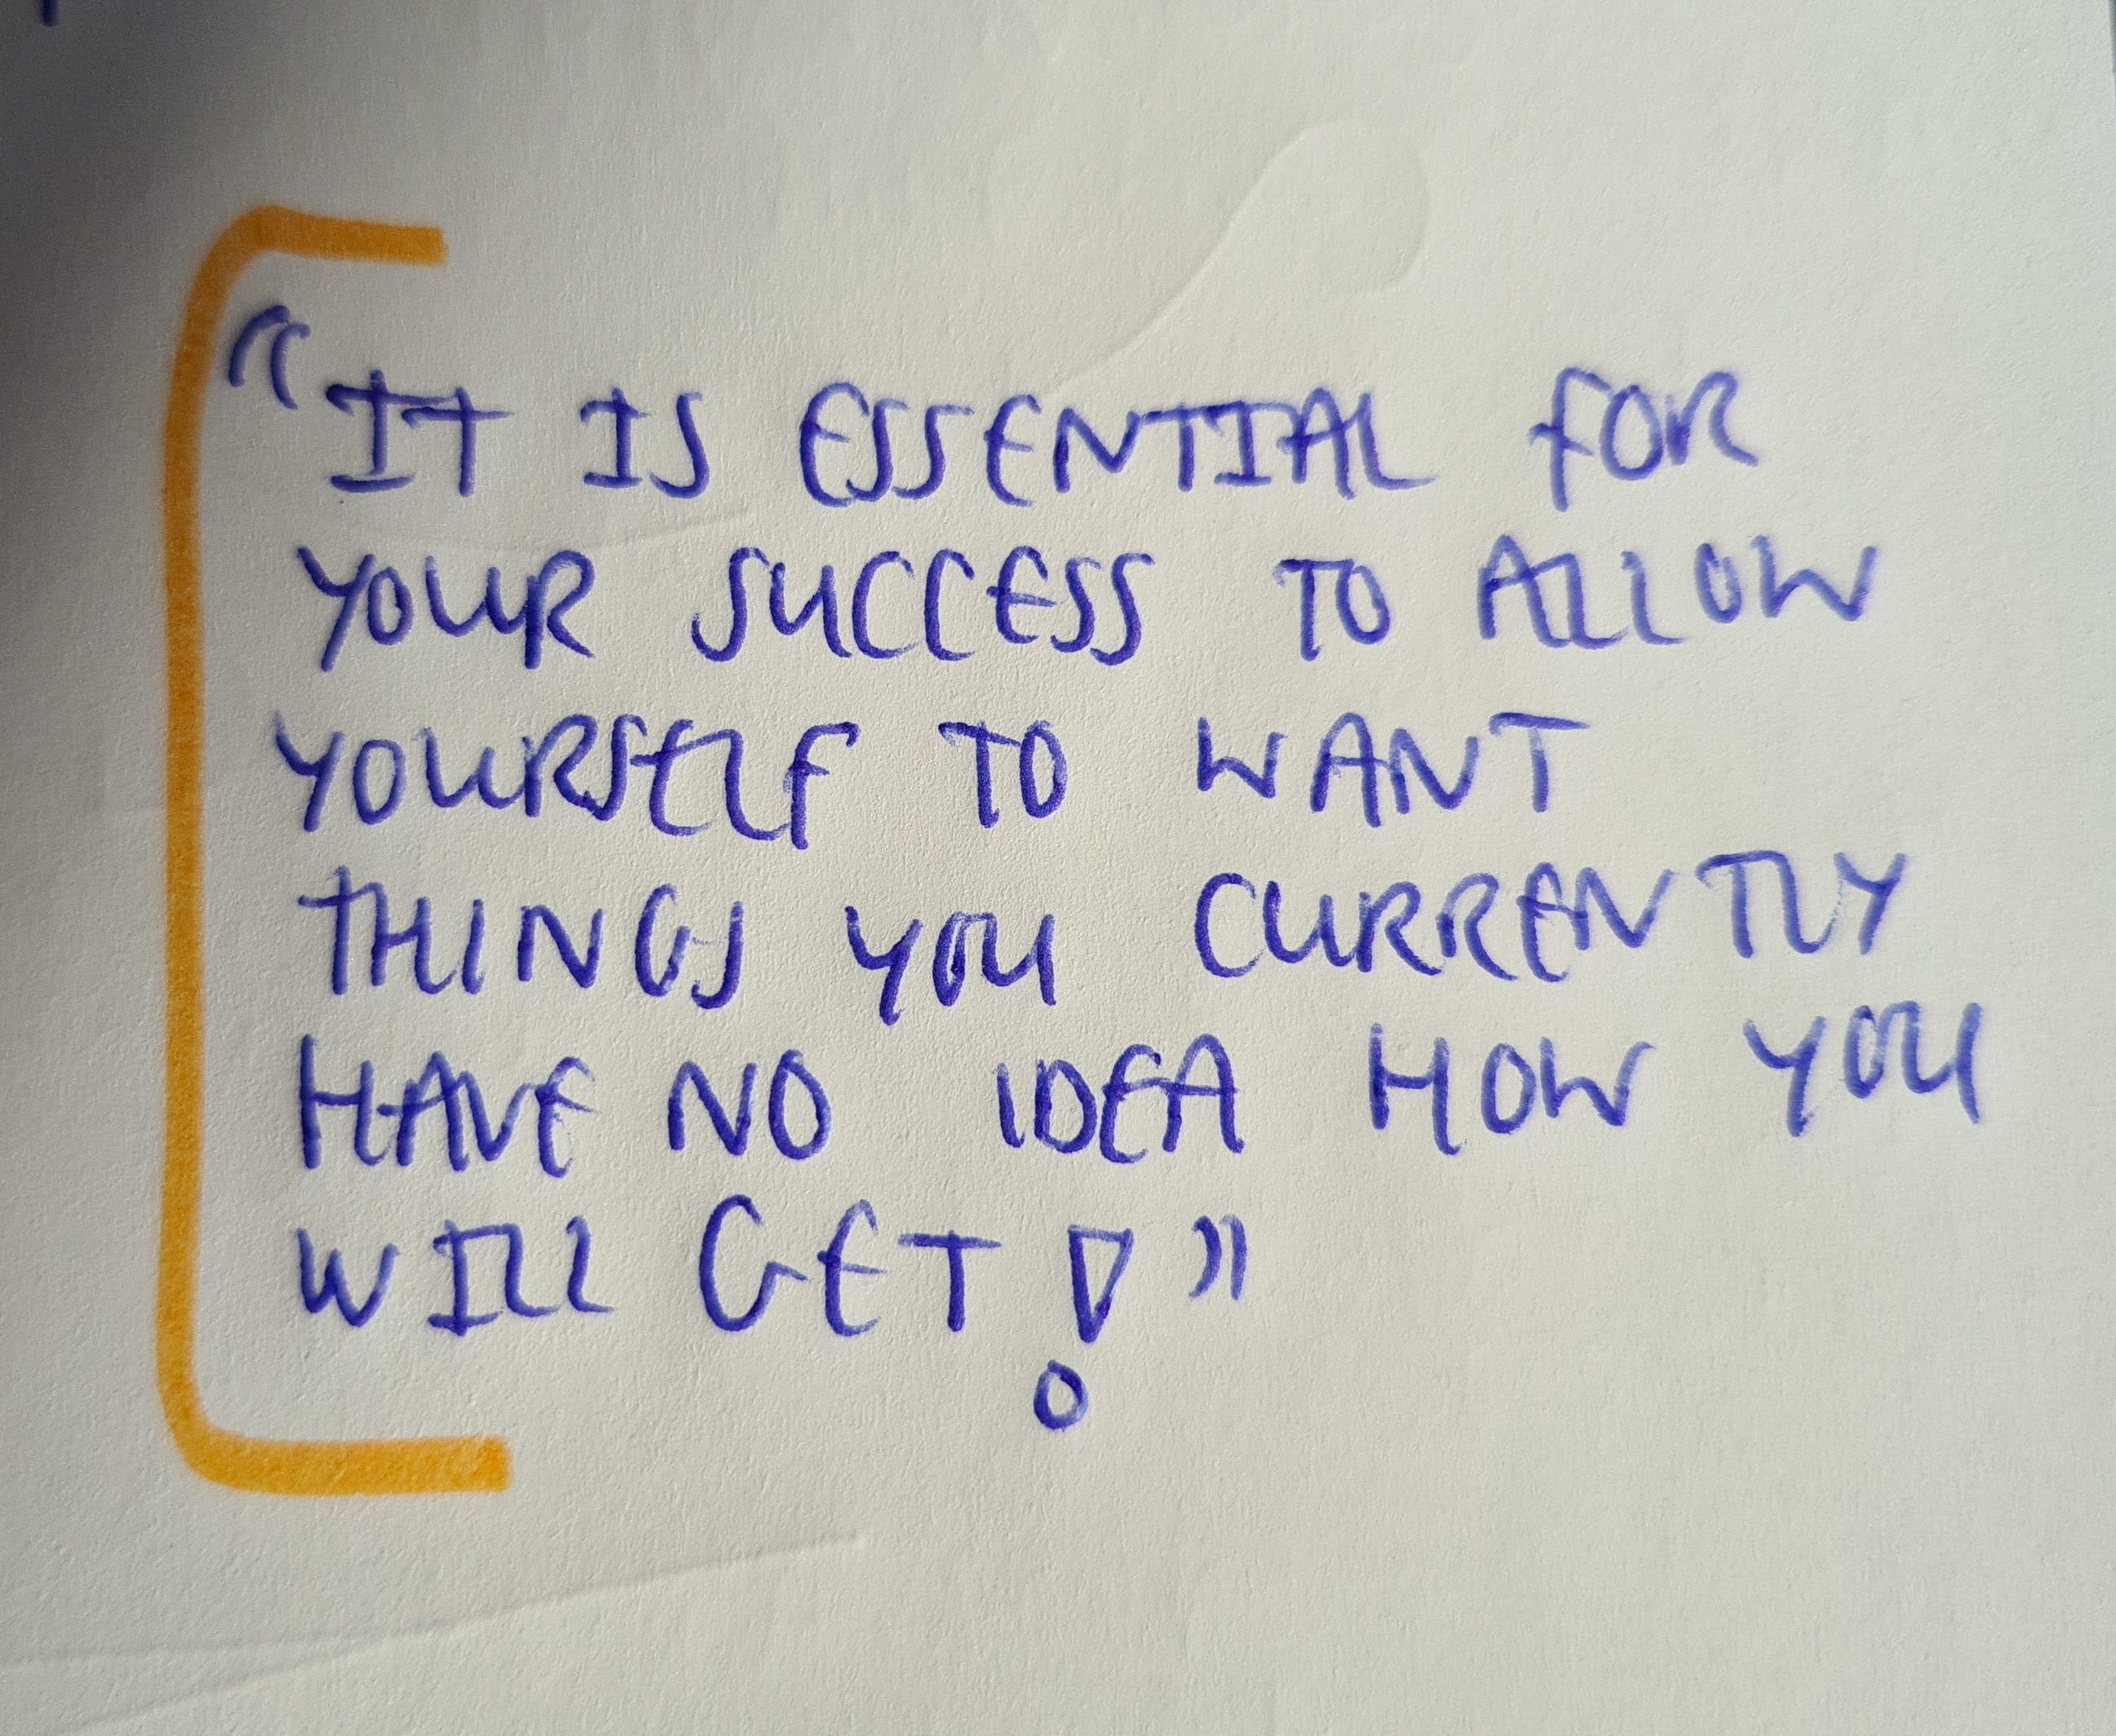 “IT IS ESSENTIAL FOR
YOUR SUCCESS TO ALLOW
YOURSELF TO WANT
THINGS YOU CURRENTLY
HAVE NO IDEA HOW YOU
WILL GET!”